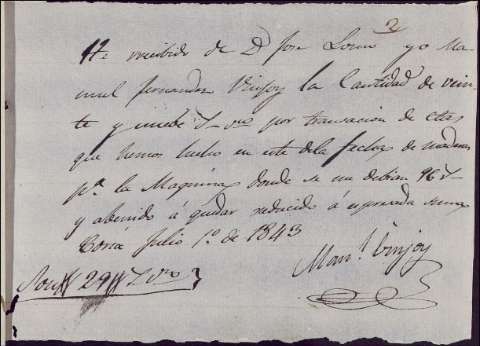 2
He recibido de D Jose Lorenz yo Ma-
nuel Fernandez Vinjoy la Cantidad de vein-
te y nuebe r.s von por transacion de ctas
que hemos hecho en este dela factura de maderas
p.a la Maquina donde se me debian 96 r.s
y abenido á quedar reducido á espresada suma
Julio 1.o de 1843
Man.l Vinjoy
Son 29 r.s von